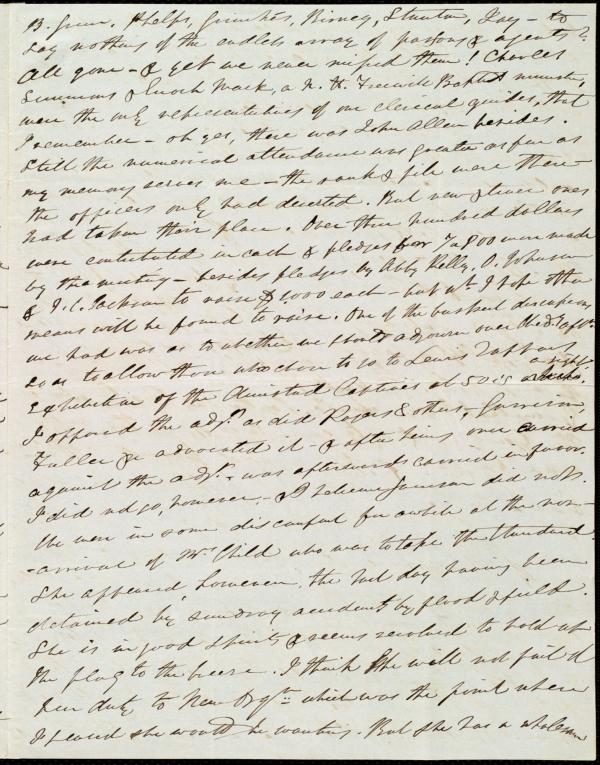 B. Green, Phelps, Grimkés, Birney, Stanton, Jay - to
say nothing of the endless array of parsons & agents?
All gone - & yet we never missed them! Charles
Simmons & Enoch Mack, a N. H. Freewill Baptist minister,
were the only representatives of our clerical guides, that
I remember - oh yes, there was John Allen besides.
Still the numerical attendance was greater as far as
my memory serves me - the rank & file were there -
the officers only had deserted. But new & truer ones
had taken their place. Over three hundred dollars
were contributed in cash & pledges for 7 or 800 more made
by the meeting - besides pledges by Abby Kelly, O. Johnson
& J. C. Jackson to raise $1000 each - but wh I hope other
means will be found to raise. One of the warmest discussions
we had was as to whether we should adjourn over Wed'y aft'n
so as to allow those who chose to go to Lewis Tappan's
exhibition of the Amistad Captives at 50 cts a sight.
I opposed the adj't as did Rogers & others, Garrison,
Fuller &c advocated it - & after being once carried
against the adj't - was afterwards carried in favor.
I did not go, however, - & I believe Garrison did not.
We were in some discomfort for awhile at the non-
-arrival of Mrs Child who was to take the Standard.
She appeared, however, the last day having been
detained by sundry accidents by flood & field.
She is in good spirits & seems resolved to hold up
the flag to the breeze. I think she will not fail in
her duty to New Org'n which was the point where
I feared she would be wanting. But she has a wholesome